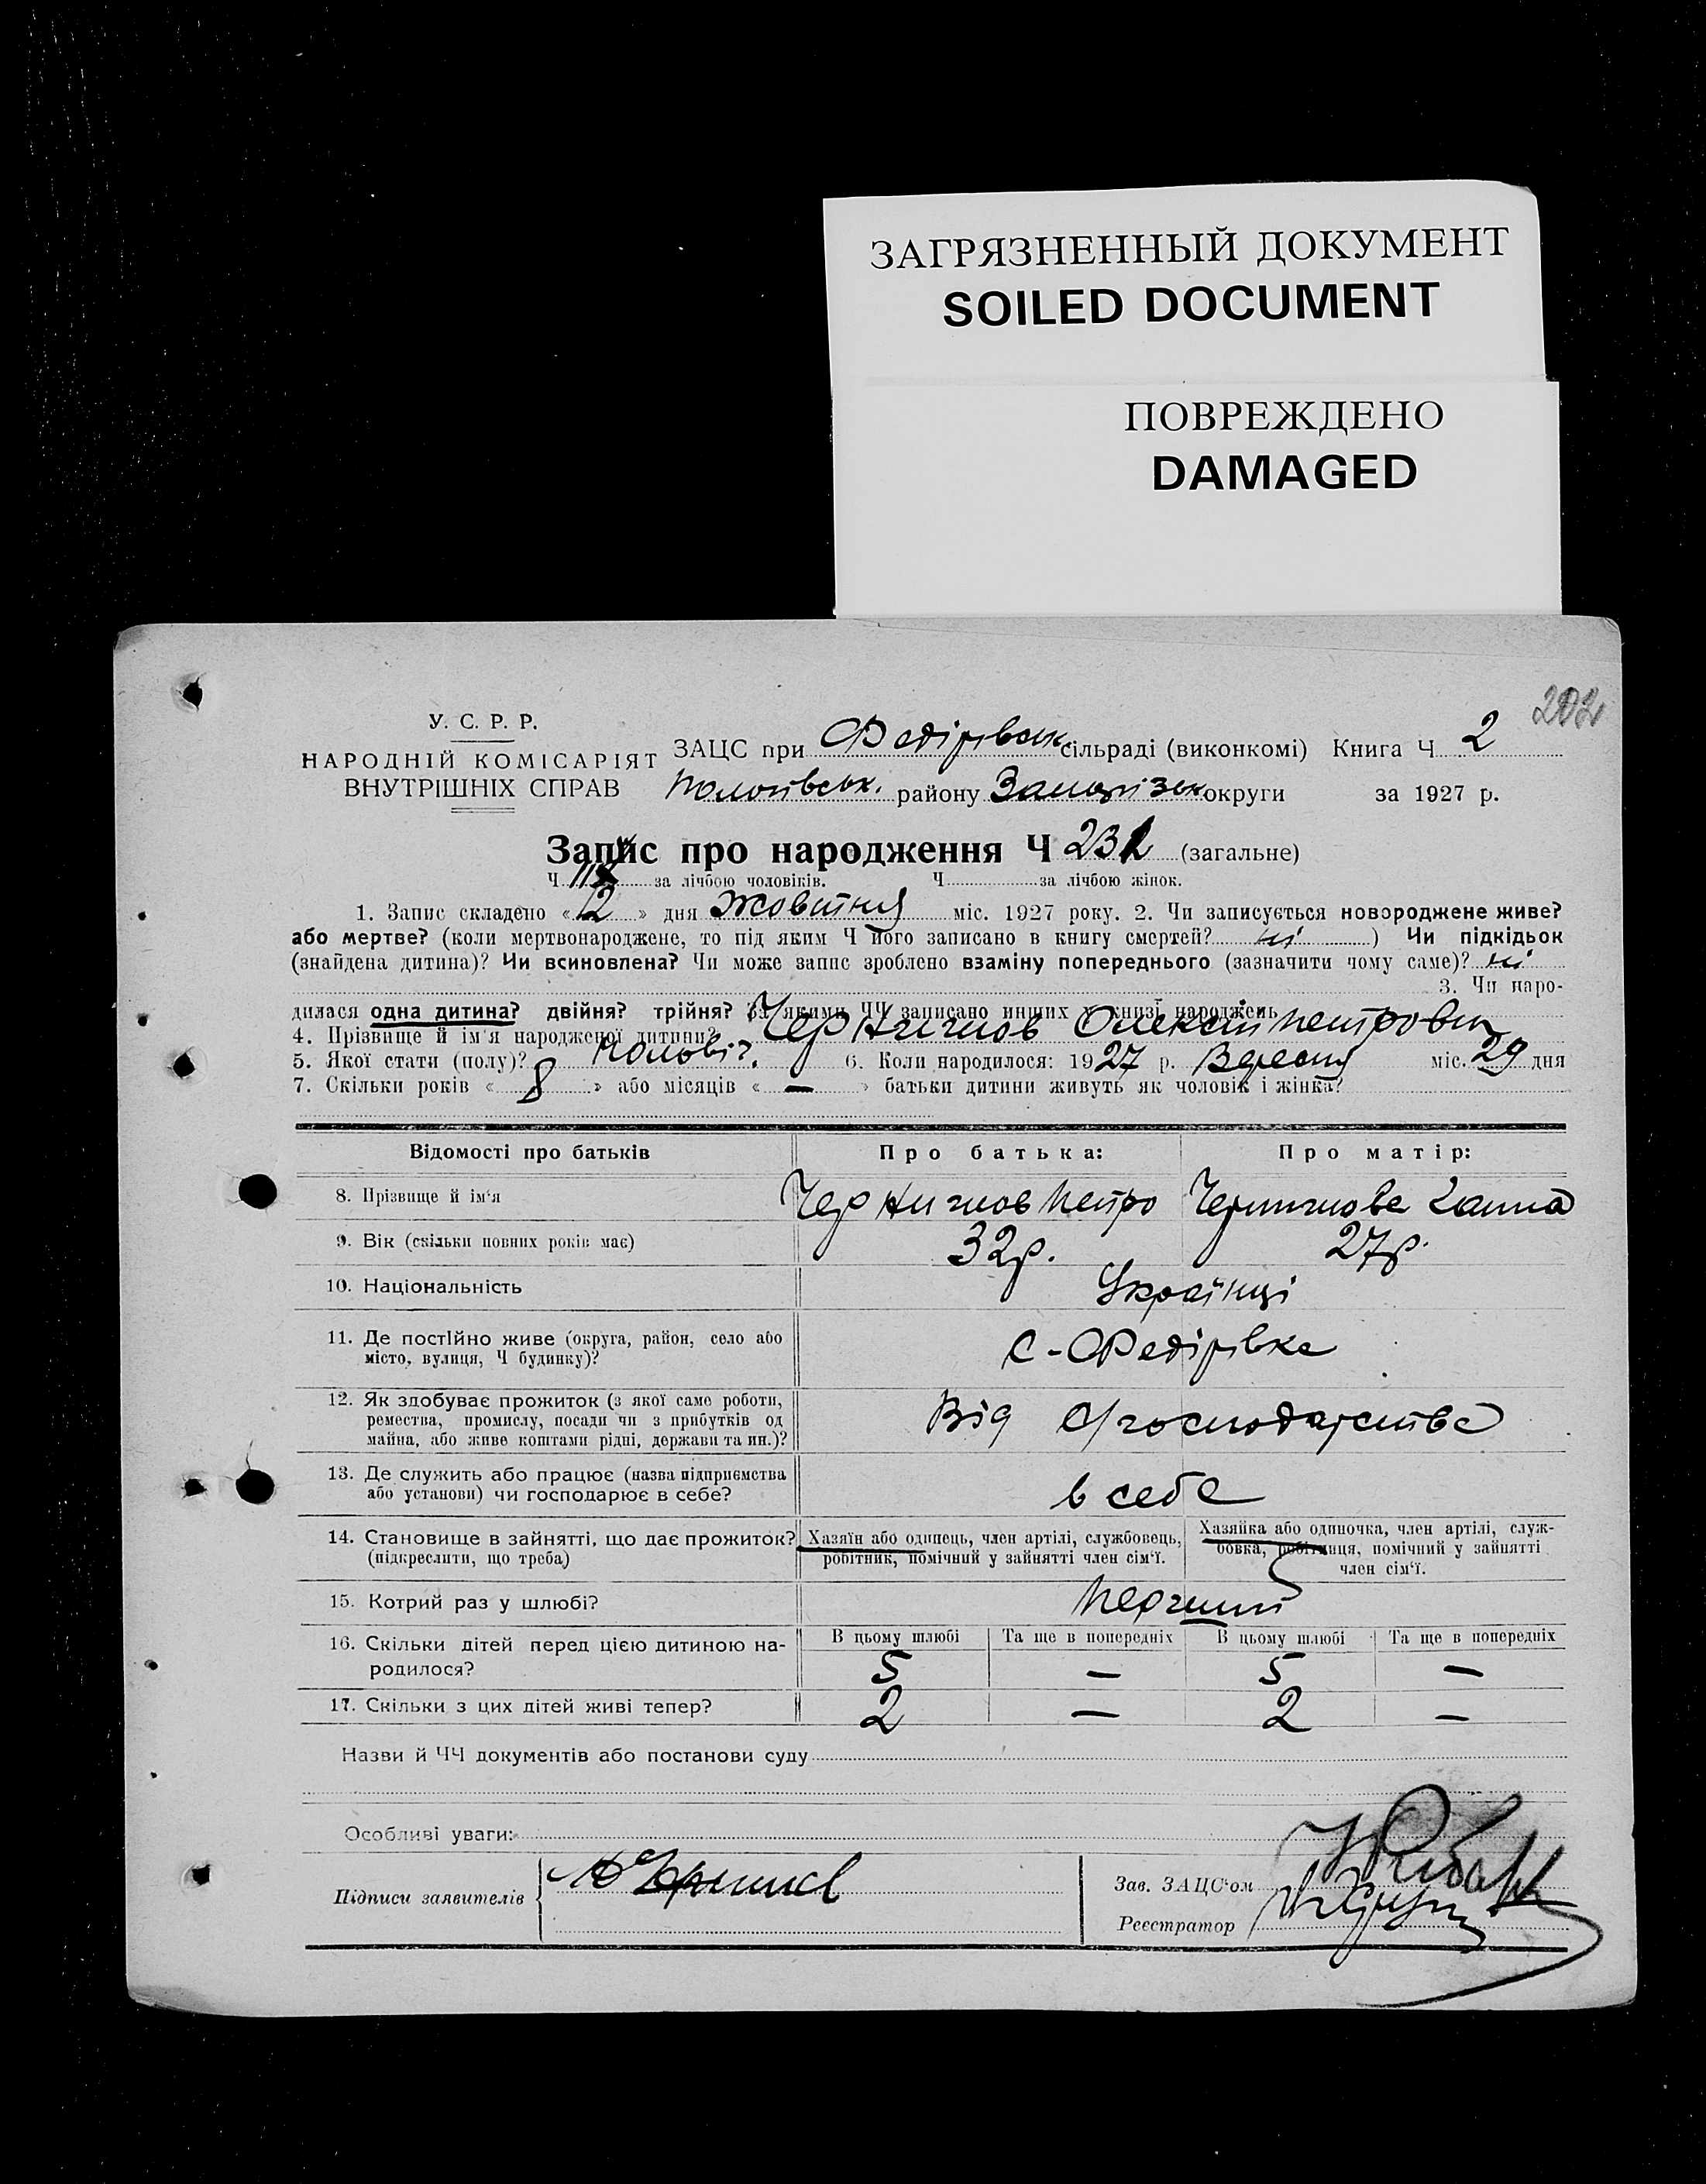 ЗАГРЯЗНЕННЫЙ ДОКУМЕНТ
SOILED DOCUMENT
ПОВРЕЖДЕНО
DAMAGED
202
У. С. Р. Р.
НАРОДНІЙ КОМІСАРІЯТ
ВНУТРІШНІХ СПРАВ
ЗАЦС при Федірівськ. сільраді (виконкомі) Книга Ч 2
Пологівськ. району Запорізьк округи за 1927 р.
Запис про народження Ч 232 (загальне)
Ч 118 за лічбою чоловіків. Ч за лічбою жінок.
1. Запис складено « 2 » дня Жовтня міс. 1927 року. 2. Чи записується новороджене живе?
або мертве? (коли мертвонароджене, то під яким Ч його записано в книгу смертей? ні ) Чи підкідьок
(знайдена дитина)? Чи всиновлена? Чи може запис зроблено взаміну попереднього (зазначити чому саме)? ні
3. Чи наро-
дилася одна дитина? двійня? трійня? За якими ЧЧ записано инших у книзі народжень
4. Прізвище й ім'я народженої дитини? Олексій Петрович
5. Якої статі (полу)? 6. Коли народилося: 1927 р. Вересня міс. 29 дня
7. Скільки років « 8 » або місяців « — » батьки дитини живуть як чоловік і жінка?
Відомості про батьків Про батька: Про матір:
8. Прізвище й ім'я Петро Ганна
9. Вік (скільки повних років має) 32р. 27р.
10. Національність Українці
11. Де постійно живе (округа, район, село або
місто, вулиця, Ч будинку)? с-Федірівка
12. Як здобуває прожиток (з якої саме роботи,
ремества, промислу, посади чи з прибутків од
майна, або живе коштами рідні, держави та ин.)? Від с/господарства
13. Де служить або працює (назва підприємства
або установи) чи господарює в себе? в себе
14. Становище в зайнятті, що дає прожиток?
(підкреслити, що треба)
Хазяїн або одинець, член артілі, службовець,
робітник, помічний у зайнятті член сім'ї.
Хазяйка або одиночка, член артілі, служ-
бовка, робітниця, помічний у зайнятті
член сім'ї.
15. Котрий раз у шлюбі? Перший
16. Скільки дітей перед цією дитиною на-
родилося?
В цьому шлюбі Та ще в попередніх В цьому шлюбі Та ще в попередніх
5 — 5 —
17. Скільки з цих дітей живі тепер? 2 — 2 —
Назви й ЧЧ документів або постанови суду
Особливі уваги:
Підписи заявителів
Зав. ЗАЦС'ом
Реєстратор